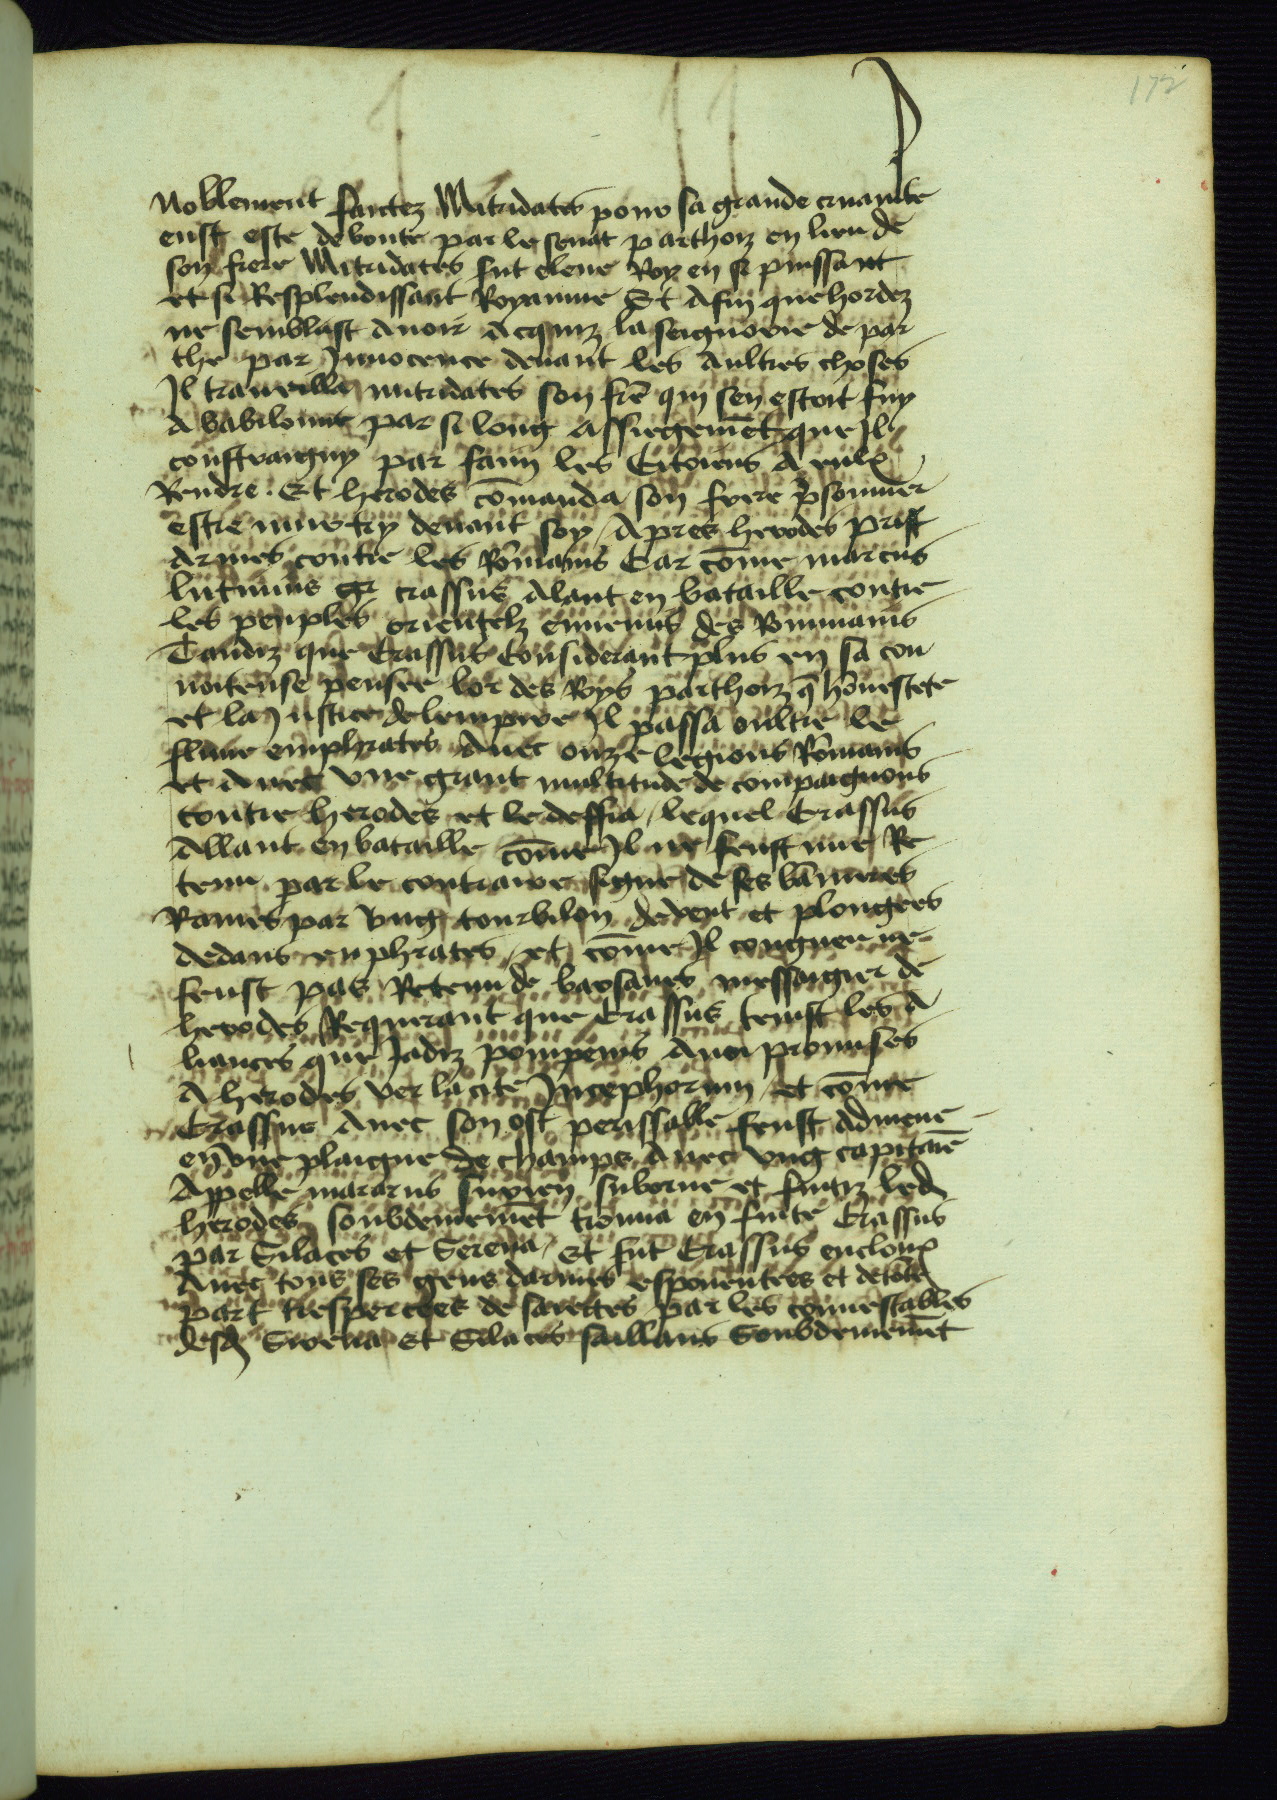 172
Noblement faictez Mitridates pour sa grande cruaulte
eust este deboute par le senat parthoiz en lieu de
son frere Mitridates fut eleue Roy en si puissant
et si Resplendissant Royaume Et Afin que hordez
ne semblast Auoir Acquiz la seignorie de par
the par Innocence deuant les Aultres choses
Il traueilla mitridates son frē qui sen estoit fuy
A babiloine par si long Assiegemēt que Il
constraigny par faim les Citoiens A eulx
Rendre. Et herodes cōmanda son frere p̄sonnier
estre murtry deuant soy / Apres herodes prist
Armes contre les Rōmains Car cōme marcus
lutinius crassus Alant en bataille contre
les peuples orientelz ennemis des Rommains
Tandiz que Crassus Considerant plus en sa con
uoiteuse pensee lor des Roys parthoiz q̄ hōnestete
et la Justice de lempire Il passa oultre le
fluue emphrates Auec onze legions Rōmains
et Auec vne grant multitude de compaignons
contre herodes et le deffia / lequel Crassus
Allant en bataille cōme Il ne feust mie Re
tenu par le contraire signe de ses bānieres
Rauies par vng tourbillon de vent et plongees
dedans euphrates / et cōme Il
feust pas Retenu de barsanes messaigier de
herodes Requerant que Crassus tenist les A
liances que Jadiz pompeius Auoit promises
A herodes ver la cite et cōme
Crassus Auec son ost perissable feust Admene
en vne plaigne de champs Auec vng capitaīe
Appelle mararus suborne et fuitiz led
herodes soubdemēt trouua en fuite Crassus
par Silaces et Serena / Et fut Crassus encloux
Auec tous ses gens darmes espouentees et de toute
part trespercees de saiectes par les connestables
desd Sirena Et Silaces saillans Soubdemēt